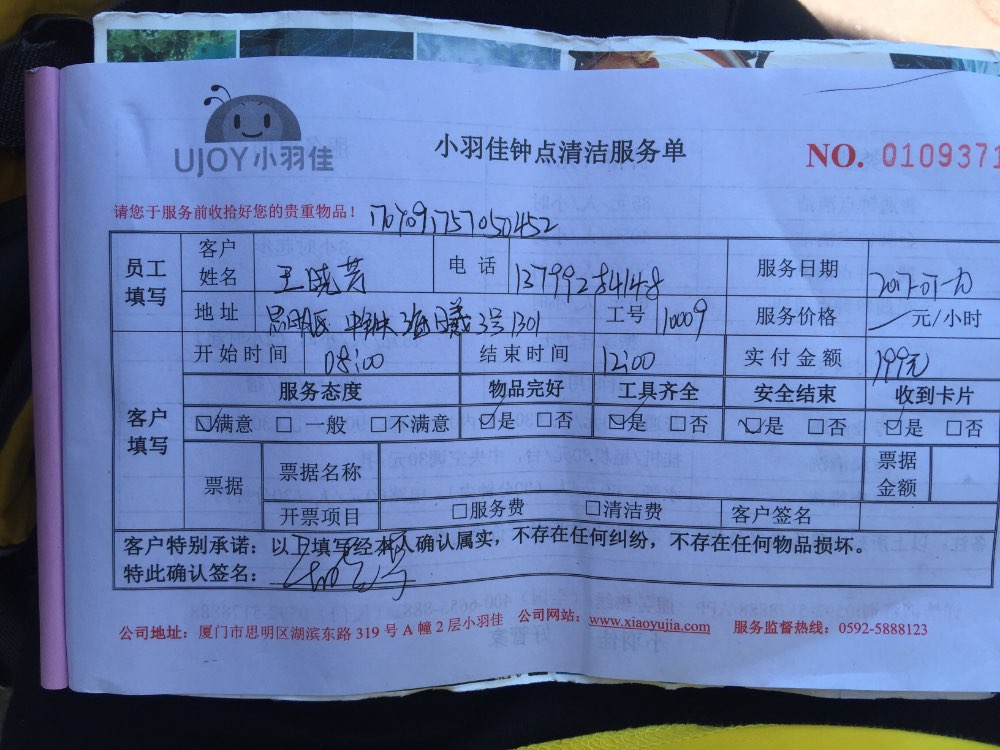 UJOY小羽佳
小羽佳钟点清洁服务单
NO. 0109371
请您于服务前收拾好您的贵重物品！
员工填写 客户姓名 王晓芳 电话 13799284148 服务日期
地址 思明区 3号1301 工号 10009 服务价格 元/小时
开始时间 08:00 结束时间 12:00 实付金额 199元
客户填写 服务态度 物品完好 工具齐全 安全结束 收到卡片
☑满意 □ 一般 □不满意 ☑是 □否 ☑是 □否 ☑是 □否 ☑是 □否
票据 票据名称 票据金额
开票项目 □服务费 □清洁费 客户签名
客户特别承诺：以上填写经本人确认属实，不存在任何纠纷，不存在任何物品损坏。
特此确认签名：
公司地址：厦门市思明区湖滨东路 319 号 A 幢 2 层小羽佳 公司网站：www.xiaoyujia.com 服务监督热线：0592-5888123